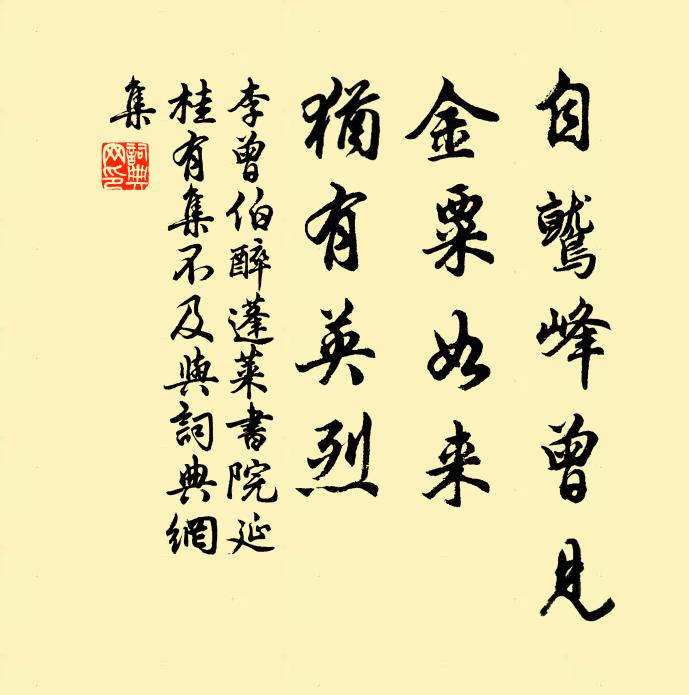 自鷲峰曾见
金粟如来
猶有英烈
李曾伯醉蓬莱書院延
桂有集不及與詞典網
集
詞典網印